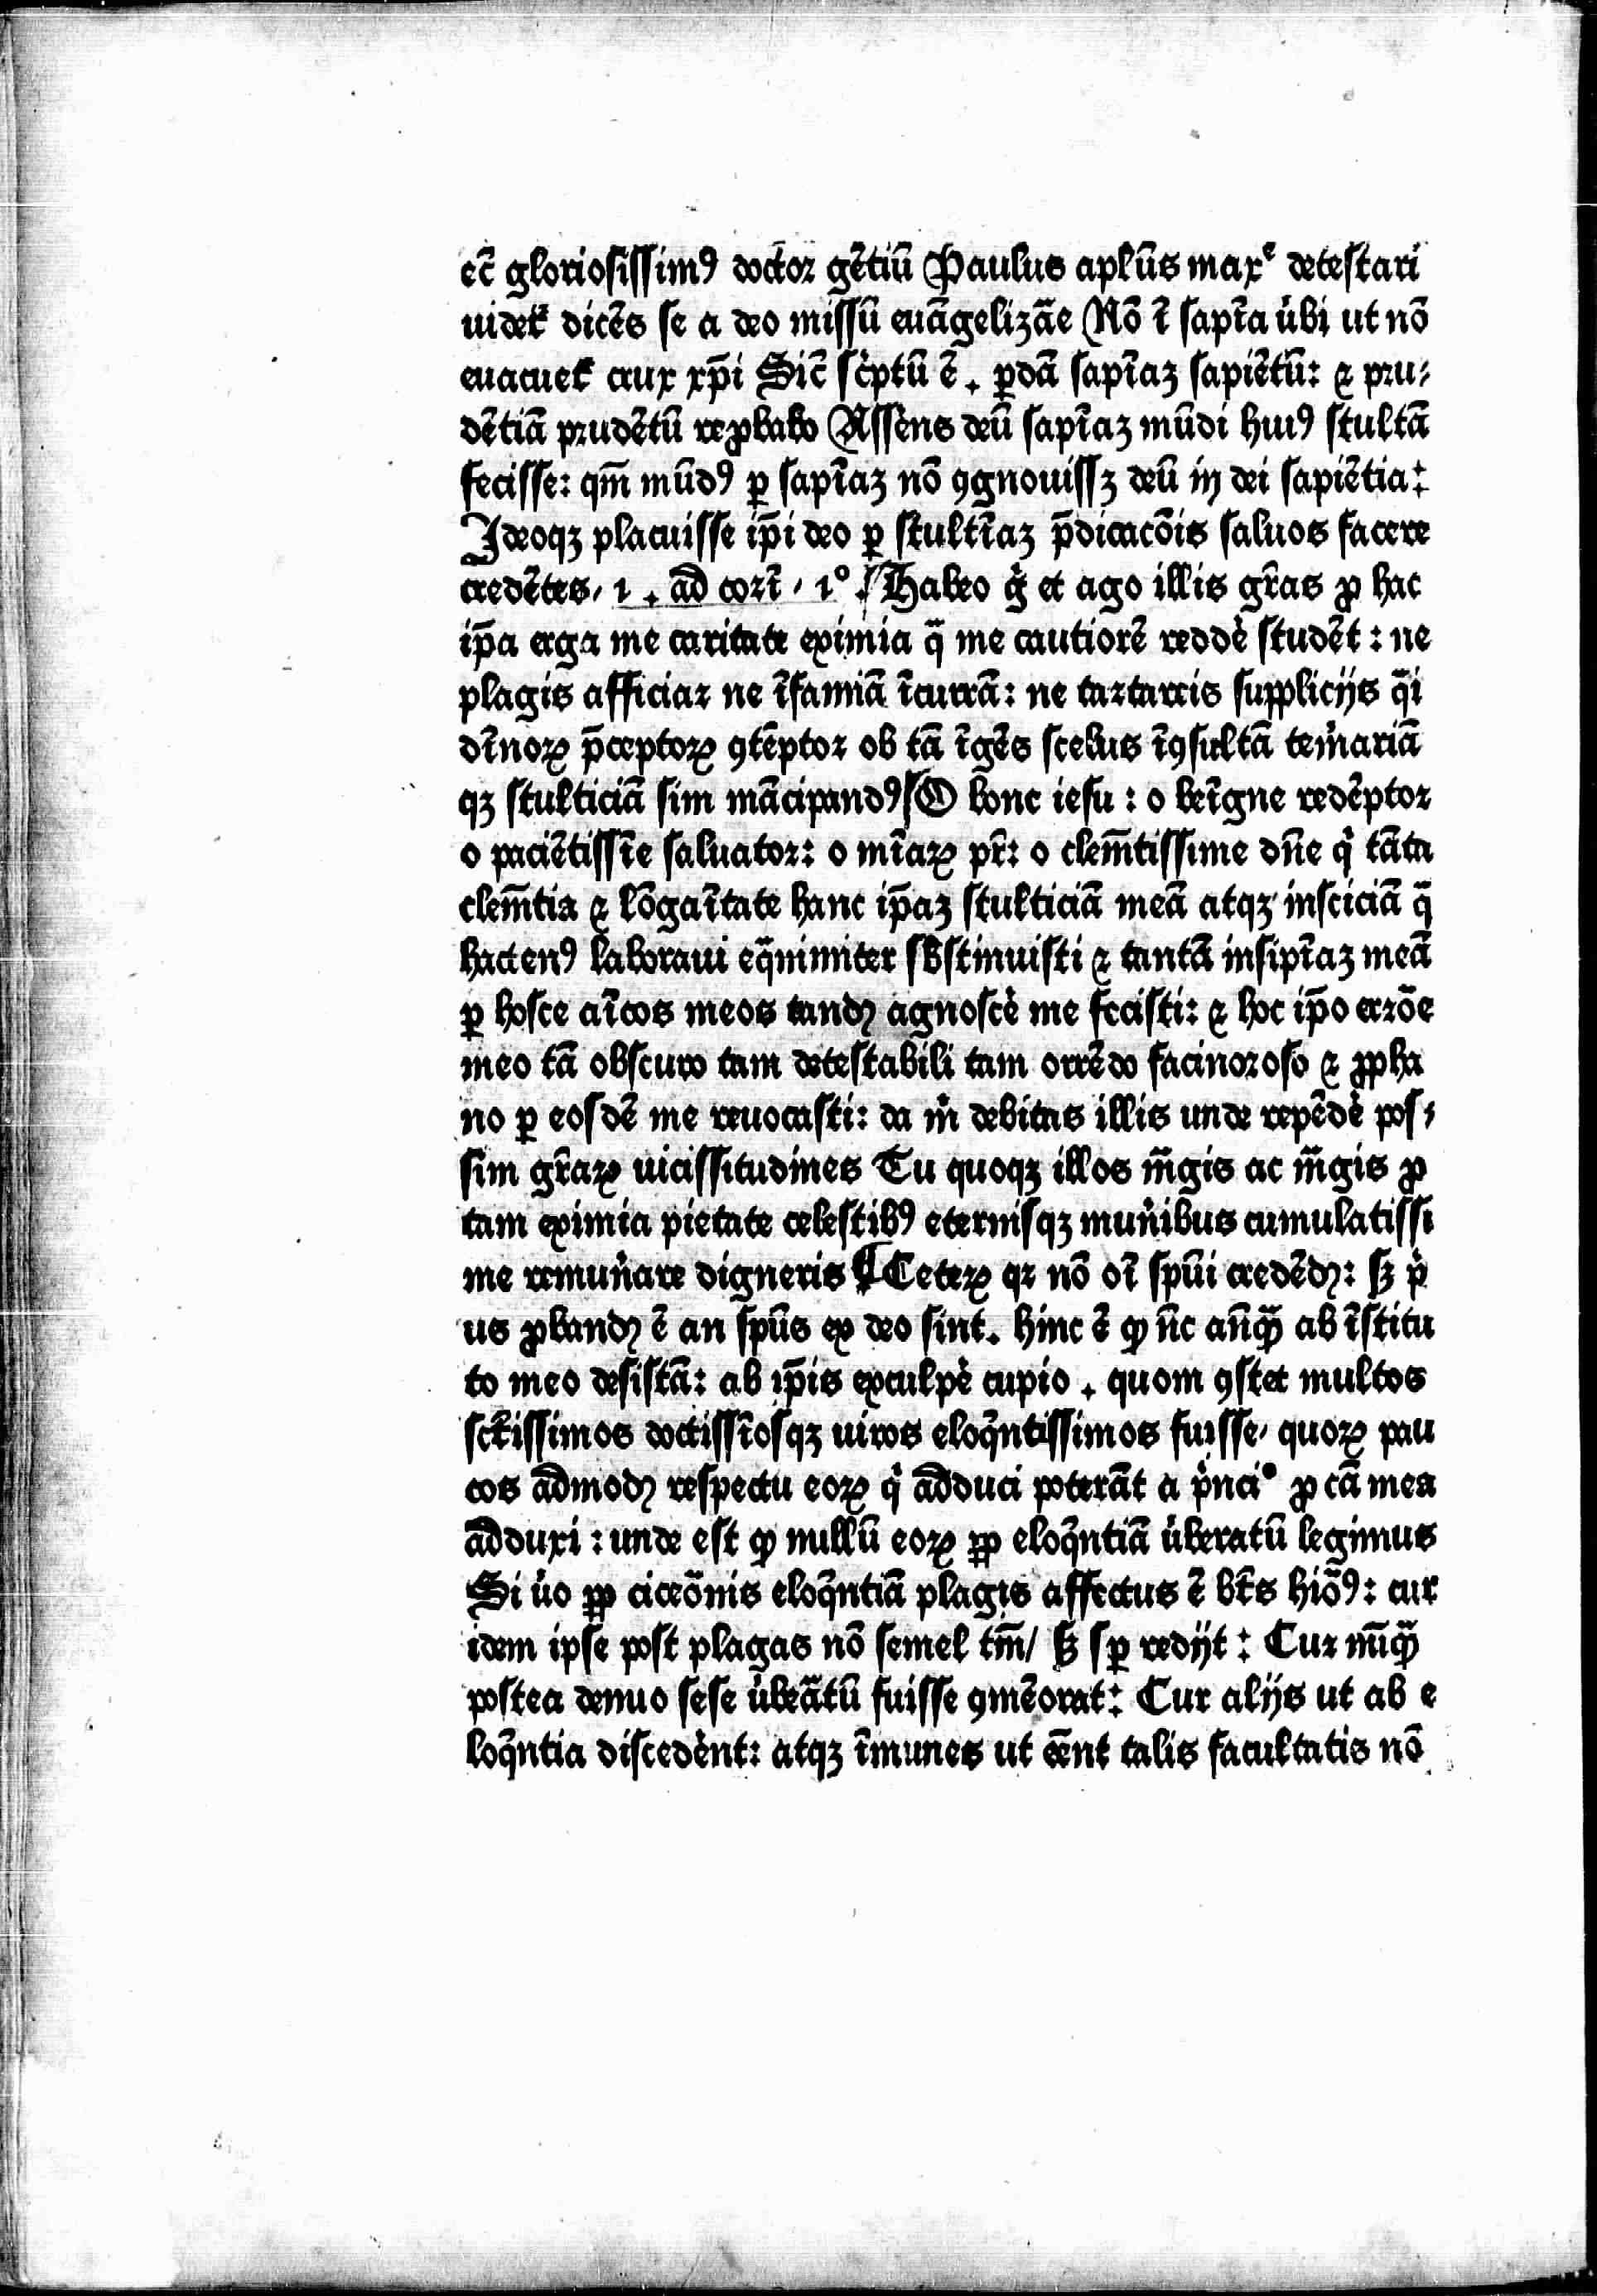 ec̄ gloriosissimꝰ doctor gētiū Paulus apl̄us maxᵉ detestari
uidet᷑ dicēs se a deo missū euāgelizāe Nō ī sapīa u̇bi ut nō
euacuet᷑ crux xp̄i Sic̄ sc̓ptū ē . ꝑdā sapīaꝫ sapiētū: ⁊ pru⸗
dētiā prudētū reꝓbabo Assēns deū sapīaꝫ mūdi huiꝰ stultā
fecisse: qm̄ mūdꝰ ꝑ sapīaꝫ nō ꝯgnouissꝫ deū in dei sapiētia:
Ideoqꝫ placuisse ip̄i deo ꝑ stultīaꝫ p̄dicacōis saluos facere
credētes, 1 . ad corī , 1º . Habeo g̓ et ago illis gr̄as ꝓ hac
ip̄a erga me caritate eximia q̄ me cautiorē redde᷑ studēt : ne
plagis afficiar ne īfamiā īcurrā: ne tartareis supplicijs q̄i
dīnoꝝ p̄ceptoꝝ ꝯtēptor ob tā īgēs scelus īꝯsultā tem̓ariā
qꝫ stulticiā sim mācipandꝰ O bone iesu : o beīgne redēptor
o paciētissīe saluator: o mīaꝝ pr̄: o clem̄tissime dn̄e q̓ tāta
clem̄tia ⁊ lōgaītate hanc ip̄aꝫ stulticiā meā atqꝫ insciciā q̄
hactenꝰ laboraui eq̄nimiter sb̄stinuisti ⁊ tantā insipīaꝫ meā
ꝑ hosce aīcos meos tandꝫ agnosce᷑ me fecisti: ⁊ hoc ip̄o errōe
meo tā obscuro tam detestabili tam orrēdo facinoroso ⁊ ꝓpha
no ꝑ eosdē me reuocasti: da m̓ debitas illis unde repēde᷑ pos⸗
sim gr̄aꝝ uicissitudines Tu quoqꝫ illos m̄gis ac m̄gis ꝓ
tam eximia pietate celestibꝰ eternisqꝫ mun̓ibus cumulatissi
me remun̓are digneris ¶ Ceteꝝ qꝛ nō oī spūi credēdꝫ: sꝫ p̓
us ꝓbandꝫ ē an spūs ex deo sint. hinc ē ꝙ n̄c anq̄ꝫ ab īstitu
to meo desistā: ab ip̄is exculpe᷑ cupio . quom ꝯstet multos
sct᷑issimos doctissīosqꝫ uiros eloq̄ntissimos fuisse, quoꝝ pau
cos admodꝫ respectu eoꝝ q̓ adduci poterāt a p̓nciº ꝓ cā mea
adduxi : unde est ꝙ nullū eoꝝ ꝓp eloq̄ntiā u̇beratū legimus
Si u̇o ꝓp ciceōnis eloq̄ntiā plagis affectus ē bt̄s hiōꝰ: cur
idem ipse post plagas nō semel tm̄/ sꝫ sꝑ redijt : Cur nūq̄ꝫ
postea denuo sese u̇beātū fuisse ꝯmēorat: Cur alijs ut ab e
loq̄ntia discede᷑nt: atqꝫ īmunes ut eēnt talis facultatis nō